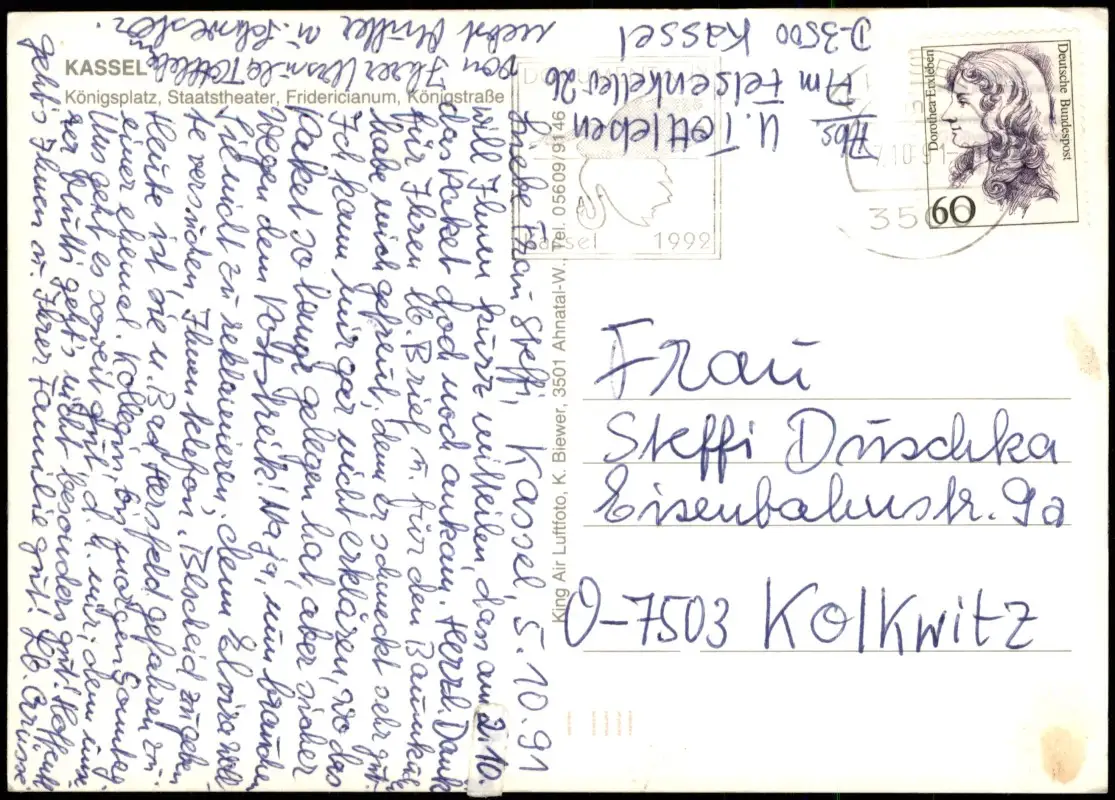 KASSEL
Königsplatz, Staatstheater, Fridericianum, Königstraße
Kassel, 5.10.91
Liebe Frau Steffi,
will Ihnen kurz mitteilen, dass am 2.10.
das Paket doch noch ankam. Herzl. Dank
für Ihren lb. Brief u. für den Baumkuchen
habe mich gefreut; denn er schmeckt sehr gut.
Ich kann mir gar nicht erklären, wo das
Paket so lange gelegen hat, aber sicher
wegen dem Poststreik! Na ja, nun brauchen
Sie nicht zu reklamieren; denn Elvira woll-
te versuchen, Ihnen telefon. Bescheid zu geben
Heute ist sie n. Bad Hersfeld gefahren zu
einer ehemal. Kollegin bis morgen Sonntag
Uns geht es soweit gut, d. h. mir; denn unse-
rer Mutti geht's nicht besonders gut! Hoffentl.
geht's Ihnen u. Ihrer Familie gut! Lb. Grüsse
von Ihrer Ursula Tottleben
nebst Mutter u. Schwester.
King Air Luftfoto, K. Biewer, 3501 Ahnatal-W., Tel. 05609/9146
Abs
U. Tottleben
Am Felsenkeller 26
D-3500 Kassel
Kassel 1992
7.10.91
350
Deutsche Bundespost
Dorothea Erxleben
60
Frau
Steffi Duschka
Eisenbahnstr. 9a
O-7503 Kolkwitz